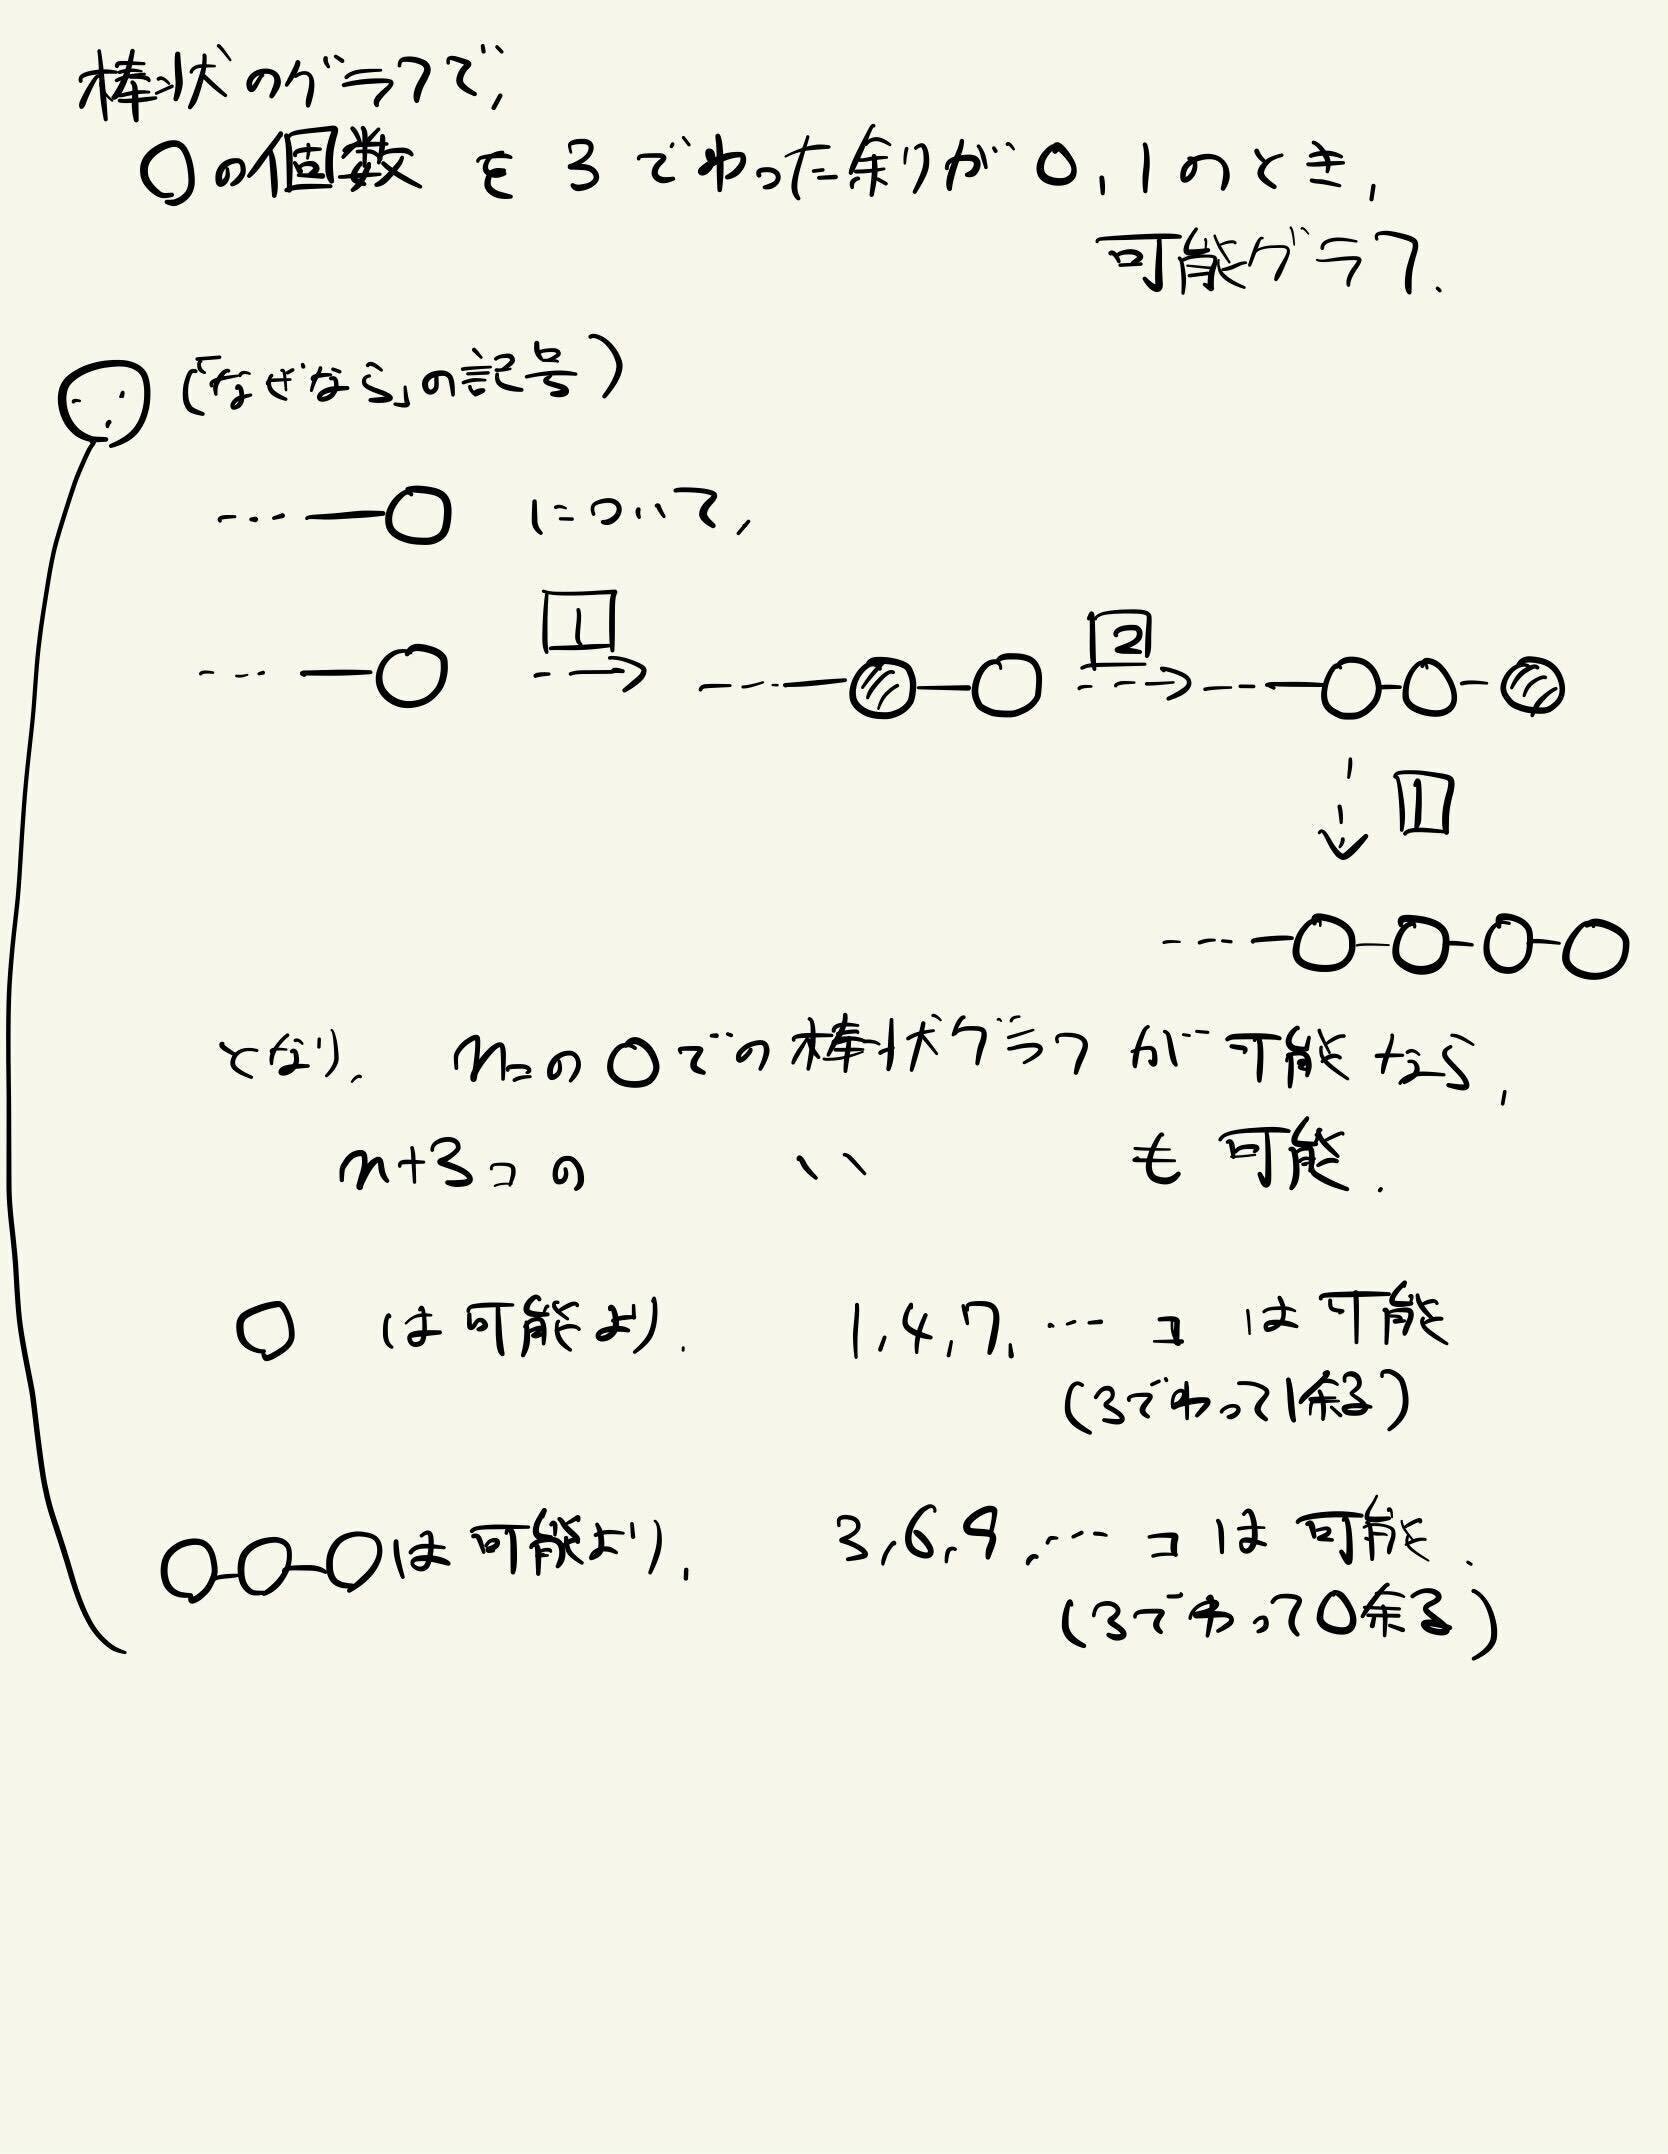 棒状のグラフで,
○の個数 を 3 でわった余りが 0, 1 のとき,
可能グラフ.
∵ (「なぜなら」の記号)
について,
1
2
1
となり, nコの ○での 棒状グラフ が 可能なら,
n+3コ の 〃 も 可能.
○ は 可能より, 1, 4, 7, … コ は 可能
(3でわって1余る)
○-○-○は 可能より, 3, 6, 9, … コ は 可能.
(3でわって0余る)